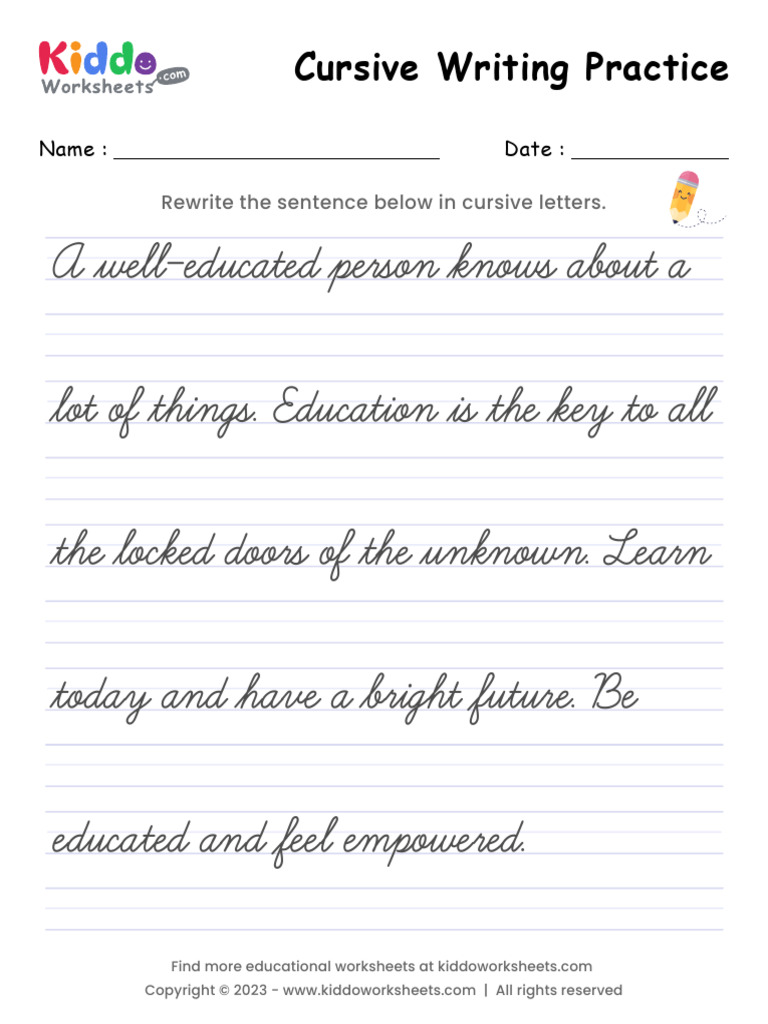 Kiddo
Worksheets.com
Cursive Writing Practice
Name : Date :
Rewrite the sentence below in cursive letters.
A well-educated person knows about a
lot of things. Education is the key to all
the locked doors of the unknown. Learn
today and have a bright future. Be
educated and feel empowered.
Find more educational worksheets at kiddoworksheets.com
Copyright © 2023 - www.kiddoworksheets.com | All rights reserved